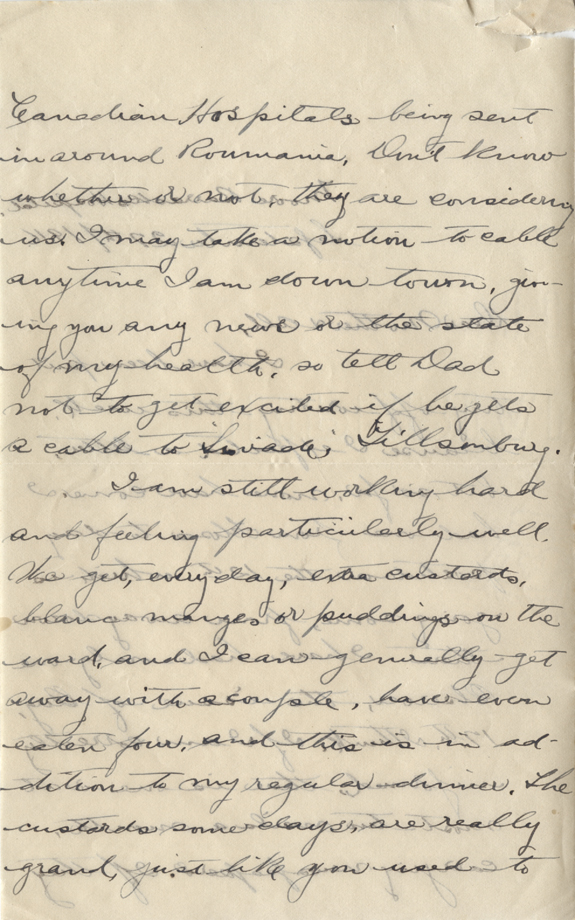 Canadian Hospitals being sent
in around Roumania. Don't know
whether or not, they are considering
us. I may take a notion to cable
anytime I am down town, giv-
ing you any news or the state
of my health, so tell Dad
not to get excited if he gets
a cable to Tillsonburg.
I am still working hard
and feeling particularly well.
We get, everyday, extra custards,
blanc manges or puddings on the
ward, and I can generally get
away with a couple, have even
eaten four, and this is in ad-
dition to my regular dinner. The
custards some days, are really
grand, just like you used to